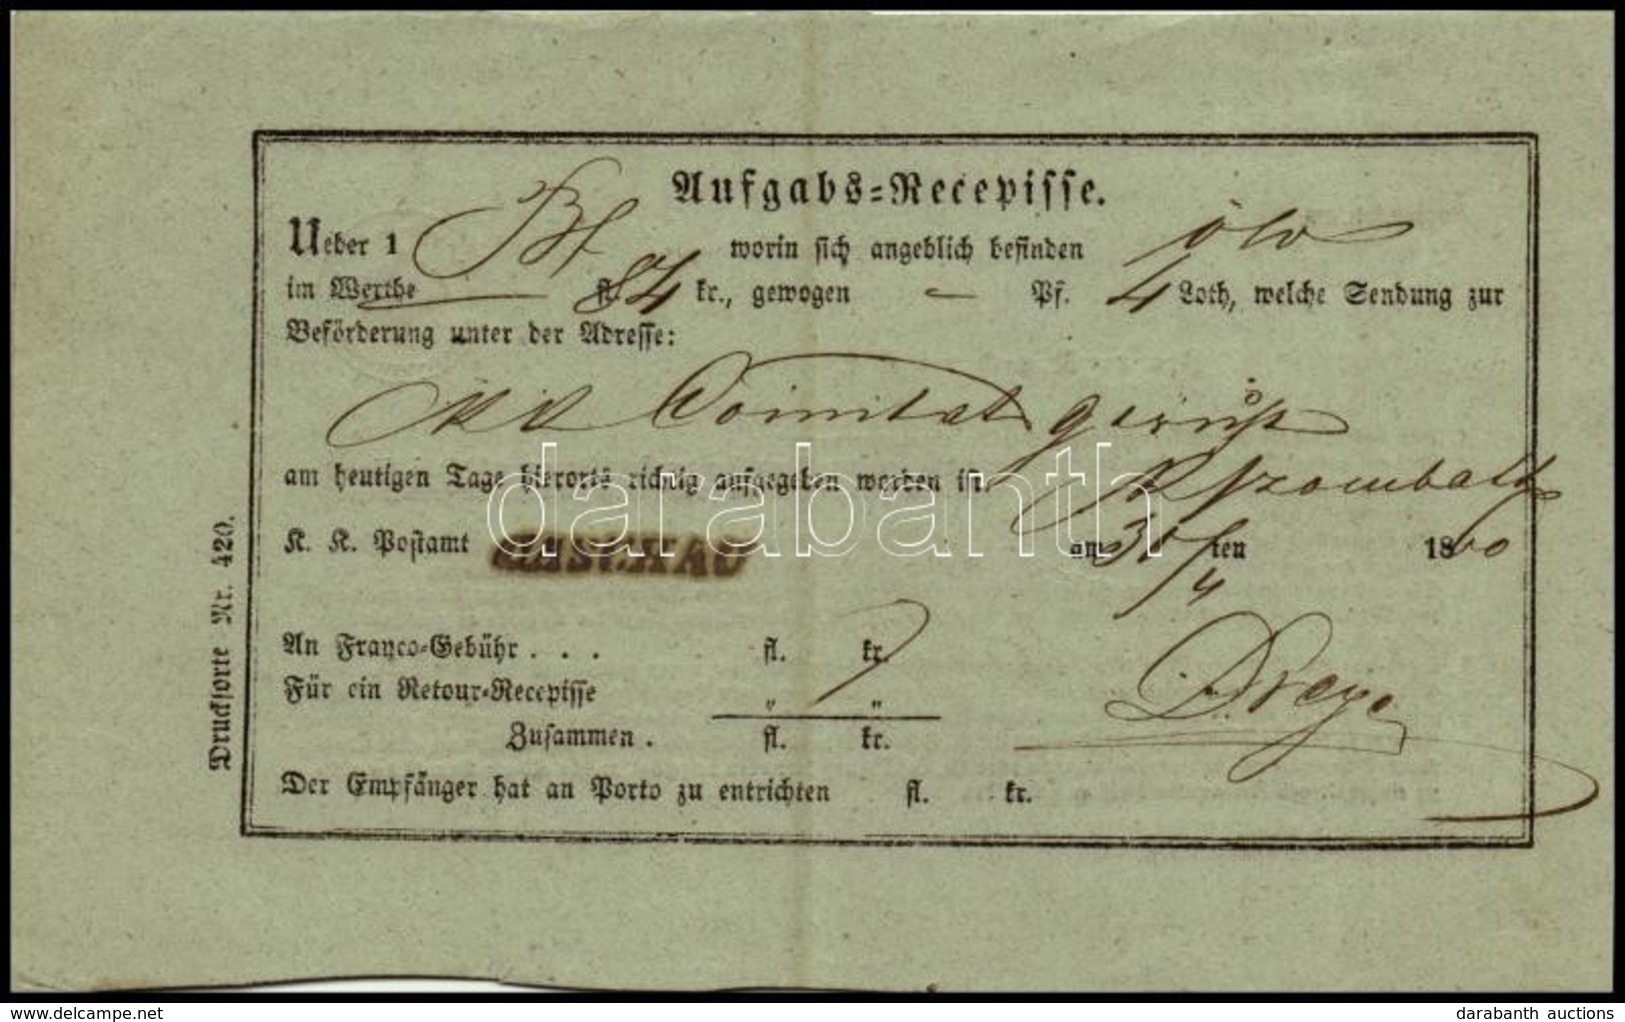 Aufgabs=Recepisse.
Ueber 1 Bf worin sich angeblich befinden
im Werthe — fl. 84 kr., gewogen — Pf. 4 Loth, welche Sendung zur
Beförderung unter der Adresse:
KK Comitats gericht
am heutigen Tage hierorts richtig aufgegeben worden ist. Rszombath
K. K. Postamt KASCHAU am 30/4 ten 1860
An Franco=Gebühr . . . fl. kr.
Für ein Retour=Recepisse " 7 "
Zusammen . fl. kr.
Der Empfänger hat an Porto zu entrichten fl. kr.
Drucksorte Nr. 420.
darabanth
delcampe.net
darabanth auctions